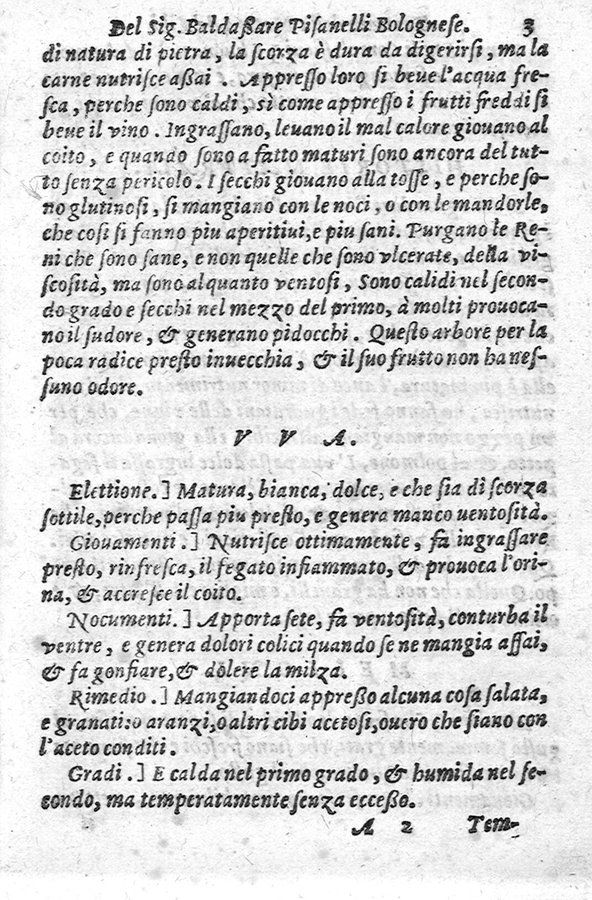 Del Sig. Baldaßare Pisanelli Bolognese. 3
di natura di pietra, la scorza è dura da digerirsi, ma la
carne nutrisce aßai. Appresso loro si beue l'acqua fre-
sca, perche sono caldi, sì come appresso i frutti freddi si
beue il vino. Ingrassano, leuano il mal calore giouano al
coito, e quando sono a fatto maturi sono ancora del tut-
to senza pericolo. I secchi giouano alla tosse, e perche so-
no glutinosi, si mangiano con le noci, o con le mandorle,
che cosi si fanno piu aperitiui, e piu sani. Purgano le Re-
ni che sono sane, e non quelle che sono vlcerate, della vi-
scosità, ma sono alquanto ventosi, Sono calidi nel secon-
do grado e secchi nel mezzo del primo, à molti prouoca-
no il sudore, & generano pidocchi. Questo arbore per la
poca radice presto inuecchia, & il suo frutto non ha nes-
suno odore.
V V A.
Elettione.] Matura, bianca, dolce, e che sia di scorza
sottile, perche passa piu presto, e genera manco uentosità.
Giouamenti.] Nutrisce ottimamente, fa ingrassare
presto, rinfresca, il fegato infiammato, & prouoca l'ori-
na, & accresce il coito.
Nocumenti.] Apporta sete, fa ventosità, conturba il
ventre, e genera dolori colici quando se ne mangia assai,
& fa gonfiare, & dolere la milza.
Rimedio.] Mangiandoci appreßo alcuna cosa salata,
e granati, o aranzi, o altri cibi acetosi, ouero che siano con
l'aceto conditi.
Gradi.] E calda nel primo grado, & humida nel se-
condo, ma temperatamente senza eccesso.
A 2 Tem-